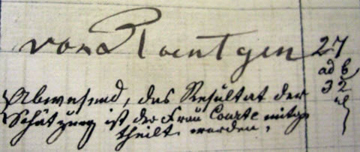 von Roentgen
27
ad 6
32
Abwesend, das Resultat der
Schätzung ist der Frau mitge
theilt worden.